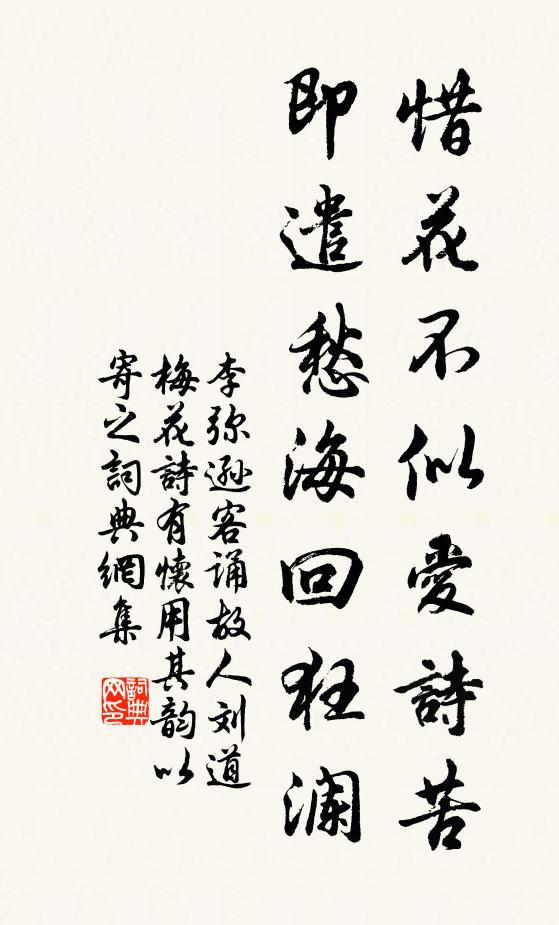 惜花不似愛詩苦
即遣愁海回狂瀾
李弥遜客誦故人刘道
梅花詩有懷用其韵以
寄之詞典網集
詞典网印